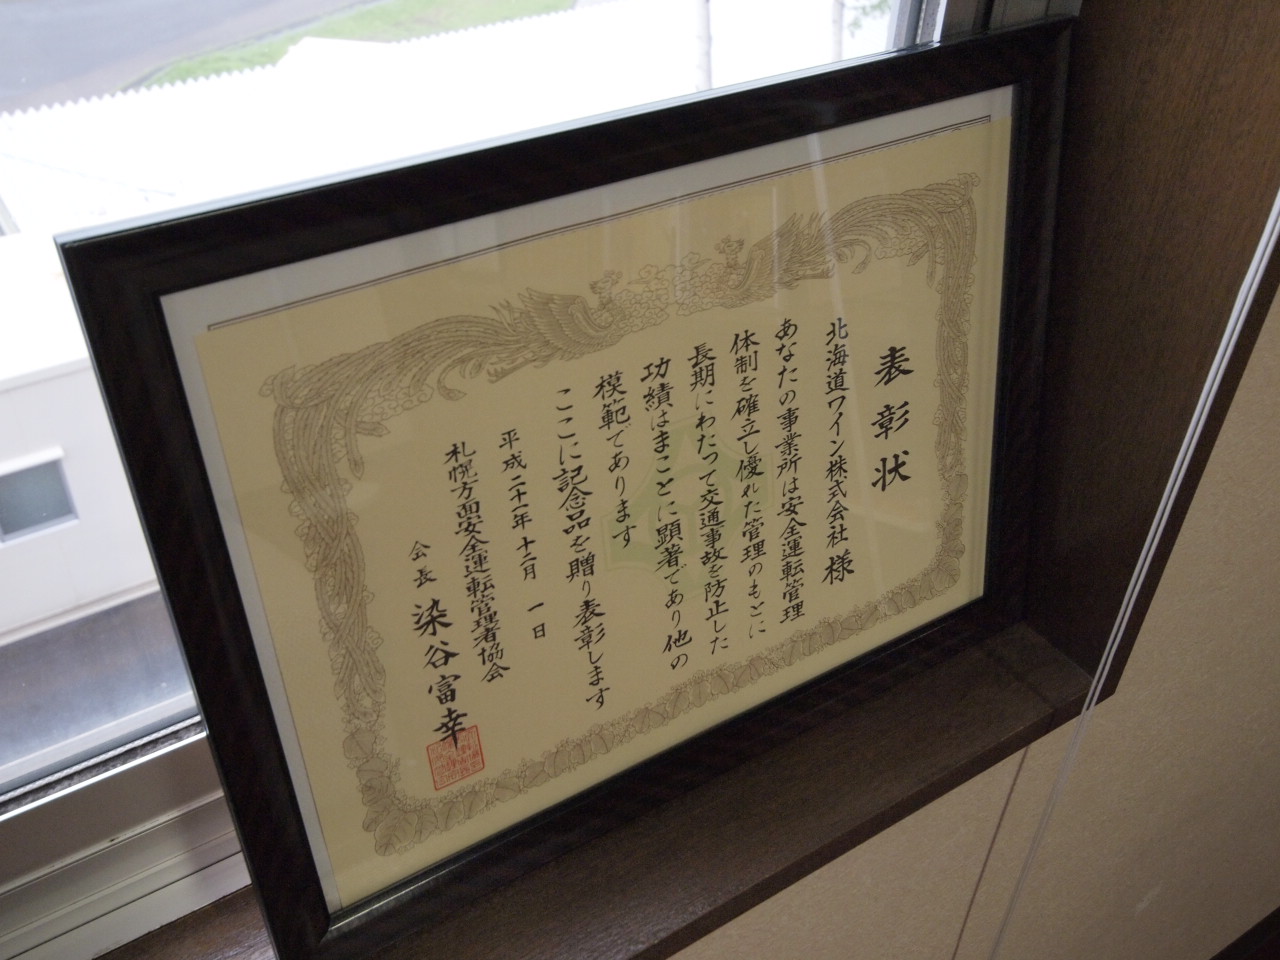 表彰状
北海道ワイン株式会社 様
あなたの事業所は安全運転管理
体制を確立し優れた管理のもとに
長期にわたって交通事故を防止した
功績はまことに顕著であり他の
模範であります
ここに記念品を贈り表彰します
平成二十一年十二月 一日
札幌方面安全運転管理者協会
会長 染谷富幸